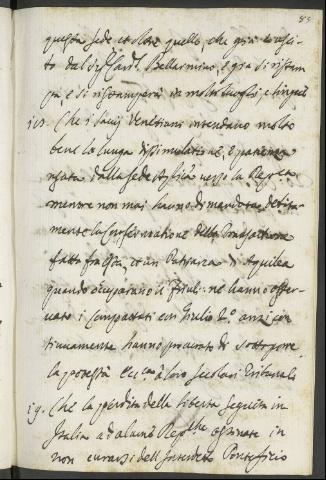 85
questa sede et oltre quello, che già è usci-
to dal Sig.r Card.l Bellarmino, e già si ristam
pa, e si ristamperà in molti luoghi e lingue
18. Che i Savij Venetiani intendano molto
bene la lunga dissimulatione, e patienza
usata dalla sede Ap.lica verso la Rep.ca
mentre non mai hanno dimandata debita-
mente la Confirmatione della Transattione
fatta fra essa, et un Patriarca di Aquilea
quando occuparono il Friul: ne hanno osser-
uato i Compattati con Giulio 2.o anzi con
tinuamente hanno procurato di sottoporre
la potestà Ecc.ca a loro secolari Tribunali
19. Che la perdita della libertà seguita in
Italia ad alcune Rep.che ostinate in
non curarsi dell'Interdetto Pontificio